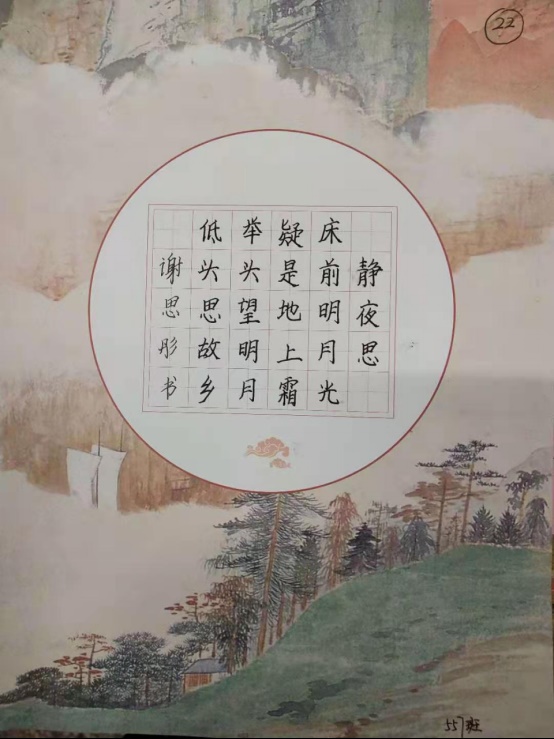 22
静夜思
床前明月光
疑是地上霜
举头望明月
低头思故乡
谢思彤书
557班